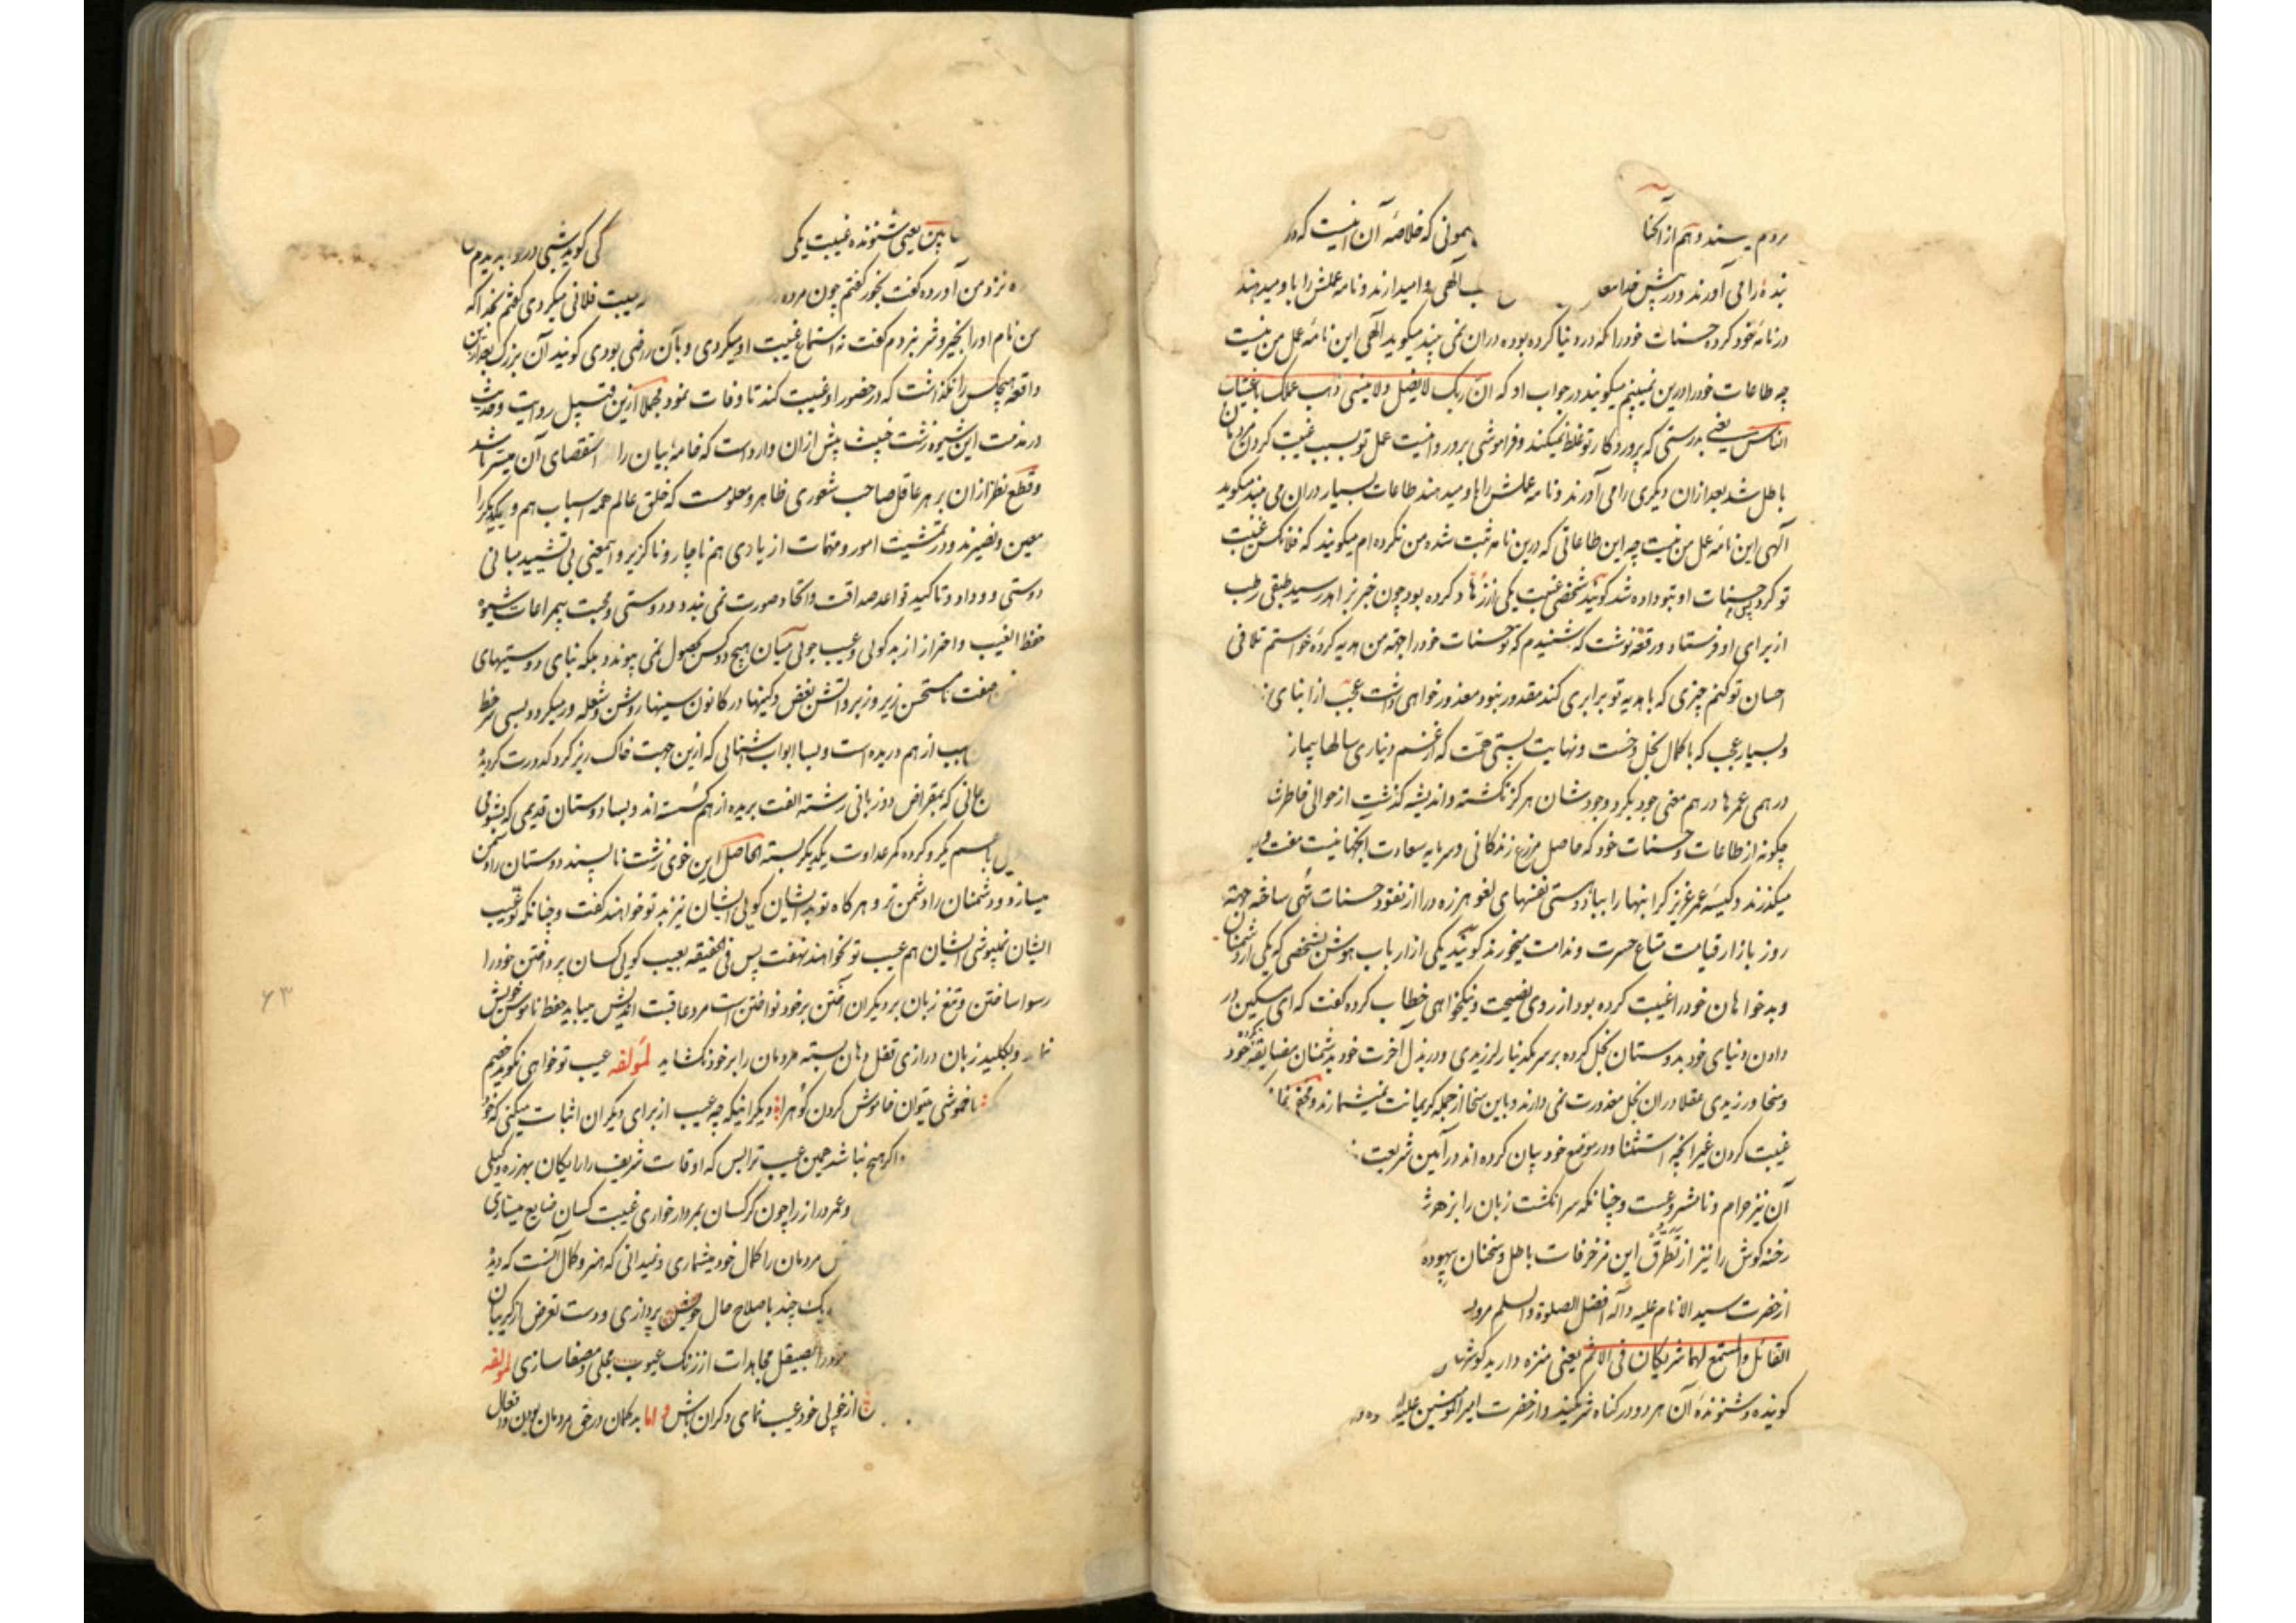 مردم پسندد و هم از آنجنا مونی که خلاصهٔ آن اینست که در
بندهٔ را می آورند و در پیش خدا الهی وامیدارند و نامه عملش را باو میدهند
در نامهٔ خود کرده حسنات خود را که در دنیا کرده بوده دران نمی بیند میکوید الهی این نامهٔ عمل من نیست
چه طاعات خود را درین نمی‌بینم میکویند در جواب او که ان ربک لایضل ولاینسی ذهب عملک باغتیاب
الناس یعنی بدرستی که پروردکار تو غلط نمیکند و فراموشی برو روا نیست عمل تو بسبب غیبت کردن مردمان
باطل شد بعد ازان دیکری را می آورند و نامه عملش را باو میدهند طاعات بسیار دران می بیند میکوید
الهی این نامهٔ عمل من نیست چه این طاعاتی که درین نامه ثبت شده من نکرده ام میکویند که فلانکس غیبت
تو کرد پس حسنات او بتو داده شد کویند شخصی غیبت یکی از زهاد کرده بود چون خبر بزاهد رسید طبقی رطب
از برای او فرستاد و رقعه نوشت که شنیدم که تو حسنات خود را بجهة من هدیه کردهٔ خواستم تلافی
احسان تو کنم چیزی که با هدیه تو برابری کند مقدور نبود معذور خواهی داشت عجب از ابنای
و بسیار عجب که با کمال بخل و خست و نهایت پستی همت که از غم دیناری سالها بیمار
درهمی عمرها درهم معنی جود بکرد وجودشان هرکز نکشته و اندیشه کذشت از حوالی خاطرشا
چکونه از طاعات و حسنات خود که حاصل مزرع زندکانی و سرمایه سعادت آنجهانیست مفت
میکذرند و کیسهٔ عمر عزیز کرانبها را بباد دستی نفسهای لغو هرزه درا از نقود حسنات تهی ساخته بجهة
روز بازار قیامت متاع حسرت و ندامت میخرند کویند یکی از ارباب هوش شخصی که یکی از دشمنان
و بدخواهان خود را غیبت کرده بود از روی نصیحت و نیکخواهی خطاب کرده کفت که ای مسکین در
دادن دنیای خود بدوستان بخل کرده بر سر یکدینار لرزیدی و در بذل آخرت خود بدشمنان مضایقه نکرده خود
و سخا ورزیدی عقلا دران بخل معذورت نمی دارند و باین سخا از جمله کریمانت نمیشمارند و مخفی نما
غیبت کردن غیر آنچه استثنا و در موضع خود بیان کرده اند در آیین شریعت
آن نیز حرام و نامشروعست و چنانکه سر انکشت زبان را از هرز
رخنه کوش را نیز از تطرق این مزخرفات باطل و سخنان بیهوده
از حضرت سید الانام علیه وآله افضل الصلوة والسلم مروی
القائل والمستمع لهما شریکان فی الاثم یعنی منزه دارید کوشها
کوینده و شنوندهٔ آن هر دو در کناه شریکیند و از حضرت امیرالمؤمنین علیه
یعنی شنونده غیبت یکی کی کوید شبی در
نزد من آورده کفت بخور کفتم چون مرده غیبت فلانی میکردی کفتم بخدا که
من نام او را بخیر و شر نبردم کفت نه استماع غیبت او میکردی و بآن راضی بودی کویند آن بزرک بعد ازین
واقعه هیچکس را نکذاشت که در حضور او غیبت کند تا وفات نمود مجملا ازین قبیل روایت و حدیث
در مذمت این شیوه زشت خبیث بیش ازان وارد است که خامه بیان را استقصای آن میسر باشد
و قطع نظر ازان بر هر عاقل صاحب شعوری ظاهر و معلومست که خلق عالم همه اسباب هم و یکدیکر را
معین و نصیرند و در تمشیت امور و مهمات از یادی هم ناچار و ناکزیر و اینمعنی بی تشیید مبانی
دوستی و وداد و تاکید قواعد صداقت و اتحاد صورت نمی بندد و دوستی و محبت بیمراعات شیوه
حفظ الغیب و احتراز از بدکوئی و عیب جوئی میان هیچ دو کس بحصول نمی پیوندد بلکه بنای دوستیهای
صفت نامستحسن زیر و زبر و آتش بغض و کینها در کانون سینها روشن و شعله ور میکردد و بسی
از هم دریده است و بسا ابواب آشنائی که ازین جهت خاک ریز کرد کدورت کردیده
که بمقراض دو زبانی رشته الفت بریده از هم کسسته اند و بسا دوستان قدیمی که بشومی
کرده کمر عداوت یکدیکر بسته الحاصل این خوی زشت ناپسند دوستان را دشمن
میسازد و دشمنان را دشمن تر و هرکاه تو بد ایشان کوئی ایشان نیز بد تو خواهند کفت و چنانکه تو عیب
ایشان نمیپوشی ایشان هم عیب تو نخواهند نهفت پس فی الحقیقه بعیب کوئی کسان پرداختن خود را
رسوا ساختن و تیغ زبان بر دیکران آختن بر خود نواختن است مرد عاقبت اندیش میباید حفظ ناموس خویش
نماید و بکلید زبان درازی قفل دهان بسته مردمان را بر خود نکشاید لمؤلفه عیب تو خواهی نکوید خصم
با خموشی میتوان خاموش کردن کوه را دیکر اینکه چه عیب از برای دیکران اثبات میکنی که خود
و اکر هیچ نباشد همین عیب ترا بس که اوقات شریف را رایکان بهرزه وکیلی
و عمر دراز را چون کرکسان بمردار خواری غیبت کسان ضایع میسازی
مردمان را کمال خود میشماری و نمیدانی که هنر و کمال آنست که دیده
یک چند باصلاح حال خویش پردازی و دست تعرض از کریبان
را بصیقل مجاهدات از زنک عیوب مجلی و مصفا سازی لمؤلفه
از خوبی خود عیب نمای دکران باش و اما بدکمان در حق مردمان بودن و افعال
۶۳